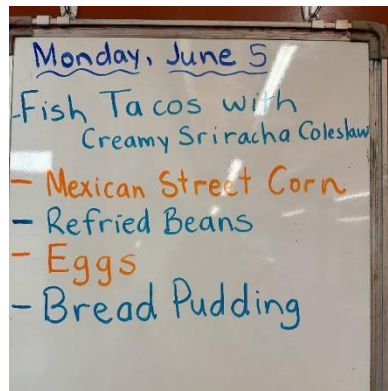 Monday, June 5
-Fish Tacos with
Creamy Sriracha Coleslaw
- Mexican Street Corn
- Refried Beans
- Eggs
- Bread Pudding